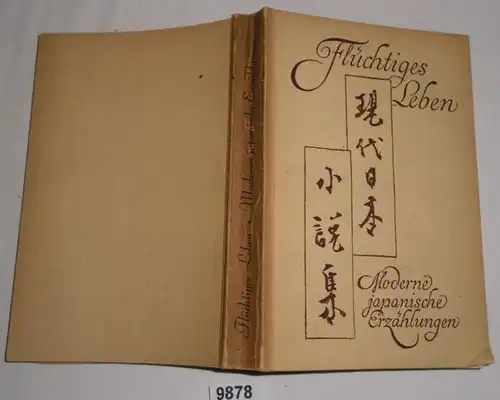 Flüchtiges
Leben
現代日本
小説集
Moderne
japanische
Erzählungen
Flüchtiges Leben • Moderne japanische Erzählungen
9878